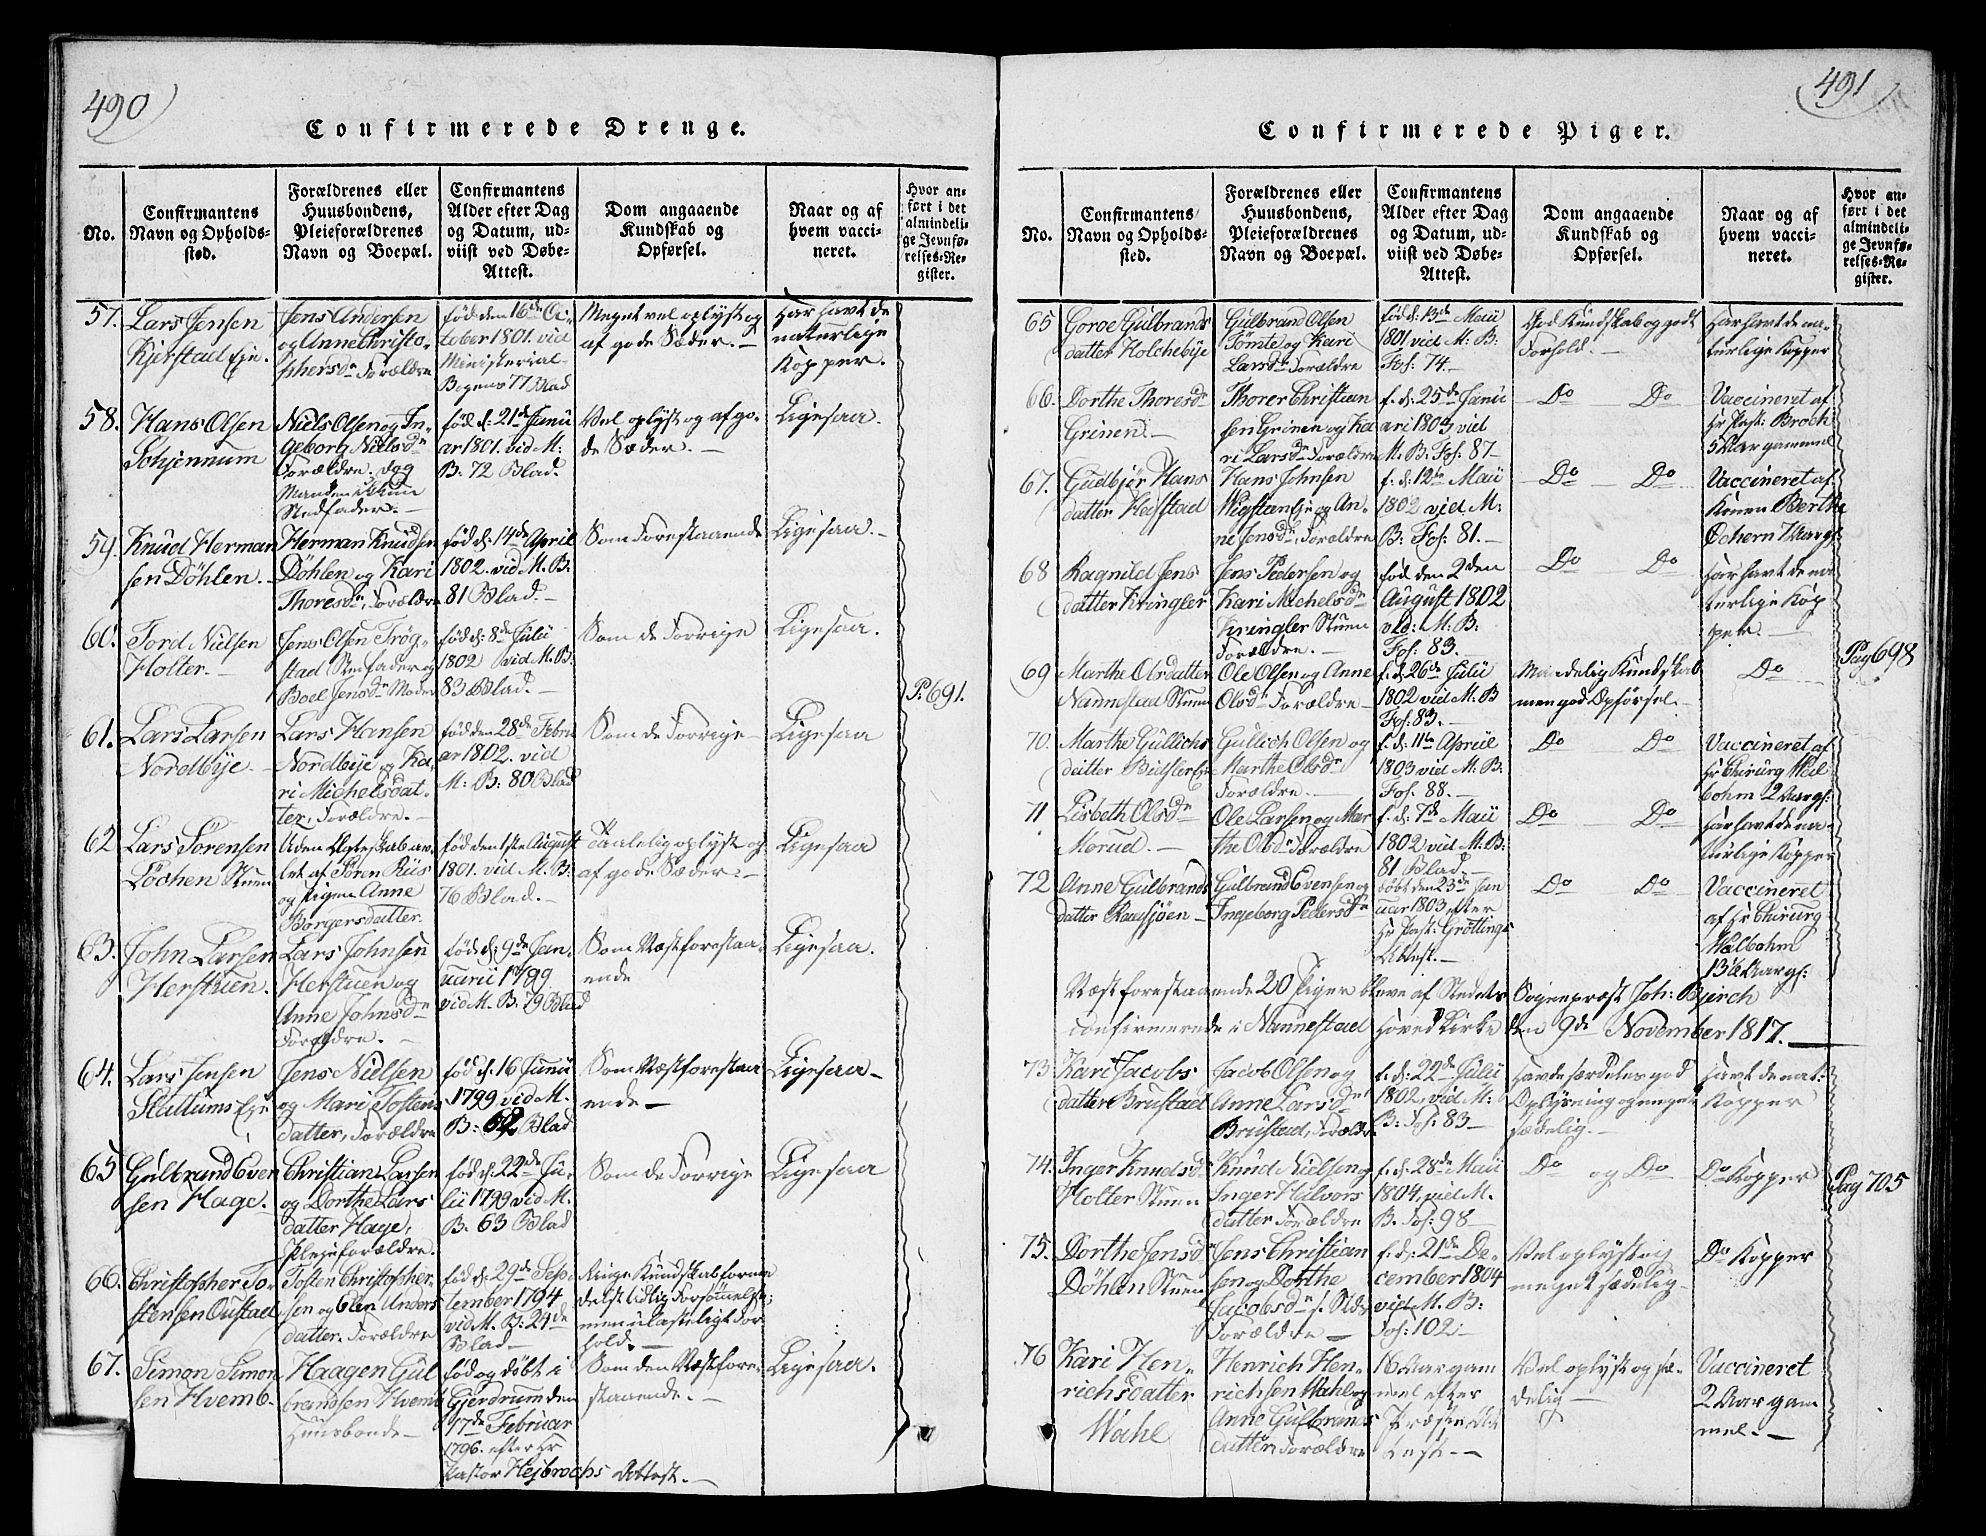 490
Confirmerede Drenge.
No.
Confirmantens
Navn og Opholds-
sted.
Forældrenes eller
Huusbondens,
Pleieforældrenes
Navn og Boepæl.
Confirmantens
Alder efter Dag
og Datum, ud-
viist ved Døbe-
Attest.
Dom angaaende
Kundskab og
Opførsel.
Naar og af
hvem vacci-
neret.
Hvor an-
ført i det
almindeli-
ge Jevnfø-
relses-Re-
gister.
57.
Lars Jensen
Kjerstad Eje.
Jens Andersen
og Anne Christo-
phersdr Forældre
født den 16de Oc-
tober 1801. vid
Ministerial-
Bogens 77 Blad
Meget vel oplyst og
af gode Sæder. —
Har havt de
naturlige
Kopper.
58.
Hans Olsen
Schjennum
Niels Olsen og In-
geborg Nielsdr
Forældre. dog
Manden ikkun
Stedfader. —
født d: 21de Janu
ar 1801. vid M:
B: 72 Blad.
Vel oplyst og af go-
de Sæder. —
Ligesaa.
59.
Knud Herman
sen Döhlen. —
Herman Knudsen
Döhlen og Kari
Thoresdr, Forældre
født d: 14de April
1802. vid M. B:
81 Blad. —
Som Forestaaende
Ligesaa. —
60.
Tord Nielsen
Holter. —
Jens Olsen Trög-
stad Stedfader og
Boel Jensdr Moder
født d: 8de Julii
1802 vid M. B:
83 Blad. —
Som de Forrige
Ligesaa.
P: 691.
61.
Lars Larsen
Nordbÿe. —
Lars Hansen
Nordbÿe og Ka-
ri Michelsdat-
ter, Forældre. —
født den 28de Febru
ar 1802. vid
M: B: 80 Blad
Som de Forrige —
Ligesaa
62
Lars Sörensen
Löchen Stuen
Uden Ægteskab av-
let af Sören Riis
og Pigen Anne
Borgersdatter.
født den 1ste August
1801. vid M. B:
76 Blad. —
Taalelig oplyst og
af gode Sæder. —
Ligesaa
63.
John Larsen
Herstuen.
Lars Johnsen
Herstuen og
Anne Johnsdr
Forældre. —
født d: 9de Jan-
uarii 1799
vid M. B: 79 Blad
Som Næstforestaa-
ende
Ligesaa.
64.
Lars Jensen
Slattums Eje
Jens Nielsen
og Mari Tostens
datter, Forældre
født d: 16 Junii
1799 vid M.
B: 62 Blad
Som Næstforestaa
ende —
Ligesaa —
65
Gulbrand Even
sen Hage.
Christian Larsen
og Dorthe Lars
datter Hage,
Plejeforældre.
født d: 22de Ju-
lii 1799 vid M.
B: 63 Blad
Som de Forrige
Ligesaa
66.
Christopher To-
stensen Oustad
Tosten Christopher-
sen og Elen Anders
datter. Forældre
født d: 29de Sep-
tember 1794
vid M. B: 24de
Blad —
Ringe Kundskab formo
delst tidlig Forsømmelse;
men ulasteligt For
hold. —
67.
Simon Simon
sen Hvemb.
Haagen Gul
brandsen Hvemb
Huusbonde —
fød og döbt i
Gjerdrum den
17de Februar
1796. efter Hr
Pastor Hejbrochs Attest. —
Som den Næstfore-
staaende. —
Ligesaa.
491
Confirmerede Piger.
No.
Confirmantens
Navn og Opholds-
sted.
Forældrenes eller
Huusbondens,
Pleieforældrenes
Navn og Boepæl.
Confirmantens
Alder efter Dag
og Datum, ud-
viist ved Døbe-
Attest.
Dom angaaende
Kundskab og
Opførsel.
Naar og af
hvem vacci-
neret.
Hvor an-
ført i det
almindeli-
ge Jevnfø-
relses-Re-
gister.
65
Goroe Gulbrands
datter Holchebÿe
Gulbrand Olsen
Tömte og Kari
Larsdr Forældre
født d: 13de Maii
1801 vid M: B:
Fol: 74. —
God Kundskab og godt
Forhold. —
Har havt de na-
turlige Kopper
66.
Dorthe Thoresdr
Grinen. —
Thorer Christian
sen Grinen og Ka
ri Larsdr Forældre
f. d: 25de Janu
ari 1803 vid
M. B: Fol: 87 —
Do Do
Vaccineret af
Hr Past: Broch
5 Aar gammel
67.
Gudbjör Hans
datter Hegstad
Hans Johnsen
Wigstein Eje og An-
ne Jensdr, Forældre
f. d: 12te Maii
1802 vid M:
B: Fol: 81. —
Do Do
Vaccineret af
Konen Berthe
Ochern 7 Aargl:
68
Ragnild Jens
datter Kringler
Jens Pedersen og
Kari Michelsdr
Kringler Stuen
Forældre. —
født den 2den
August 1802
vid: M: B:
Fol: 83. —
Do Do
Har havt de na
turlige Kop
per. —
69
Marthe Olsdatter
Nannestad Stuen
Ole Olsen og Anne
Olsdr Forældre —
f. d: 26de Julii
1802 vid M: B
Fol: 83. —
Maadelig Kundskab
men god Opførsel. —
Do
Pag 698
70.
Marthe Gullichs
datter Bidsler Eje
Gullich Olsen og
Marthe Olsdr
Forældre. —
f. d: 11te Apriil
1803 vid M: B:
Fol: 88. —
Do Do
Vaccineret af
Hr Chirurg Wal
bohm 2 Aargl:
71
Lisbeth Olsdr
Morud. —
Ole Larsen og Mar
the Olsdr Forældre
f. d: 7de Maii
1802 vid M: B:
81 Blad. —
Do Do
Har havt de na-
turlige Kopper
72
Anne Gulbrands
datter Rausjöen —
Gulbrand Evensen og
Ingeborg Pedersdr
döbt den 23de Jan
uar 1803 efter
Hr Past: Gröttings
Attest. —
Do Do
Vaccineret
af Hr Chirurg
Walbohm
13½ Aargl:
Næstforestaaende 20 Piger bleve af Stedets Sognepræst Joh: Bjerch
confirmerede i Nannestad Hoved Kirke den 9de November 1817. —
73
Kari Jacobs
datter Brustad
Jacob Olsen og
Anne Larsdr
Brustad, Forældre
f. d: 22de Julii
1802, vid M:
B: Fol: 83 —
Havde særdeles god
Oplysning og meget
sædelig. —
Havt de nat:
Kopper
74.
Inger Knudsdr
Holter Stuen
Knud Nielsen og
Inger Halvors
datter Forældre
f. d: 28de Maii
1804, vid M.
B. Fol: 98 —
Do og Do
Do Kopper
Pag 705
75.
Dorthe Jensdr
Döhlen Stuen
Jens Christian
sen og Dorthe
Jacobsdr
Forældre —
f. d: 21de De-
cember 1804
vid M. B:
Fol: 102 —
Vel oplyst og
meget sædelig —
Do Kopper
76
Kari Hen-
richsdatter
Wahl
Henrich Hen-
richsen Wahl og
Anne Gulbrands
datter, Forældre
16 Aar gam
mel efter
Præste At
test. —
Vel oplyst og sæ-
delig —
Vaccineret
2 Aar gam
mel. —